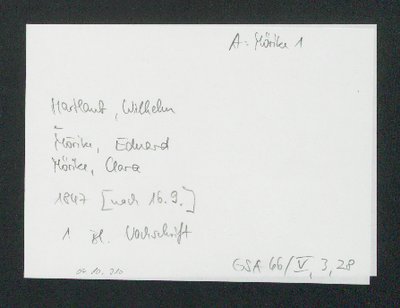 A: Mörike 1
Hartlaub, Wilhelm
Mörike, Eduard
Mörike, Clara
1847 [nach 16.9.]
1 hl. Nachschrift
GSA 66/V, 3, 28